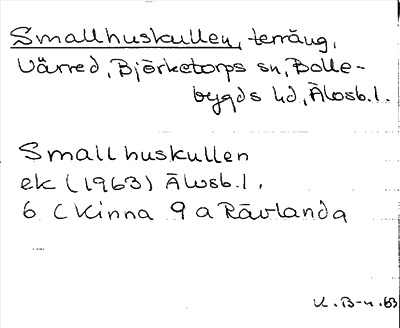 Smallhuskullen, terräng,
Värred, Björketorps sn, Bolle-
bygds hd, Älvsb.l.
Smallhuskullen
ek (1963) Älvsb.l.
6 C Kinna 9 a Rävlanda
K.B-n.63